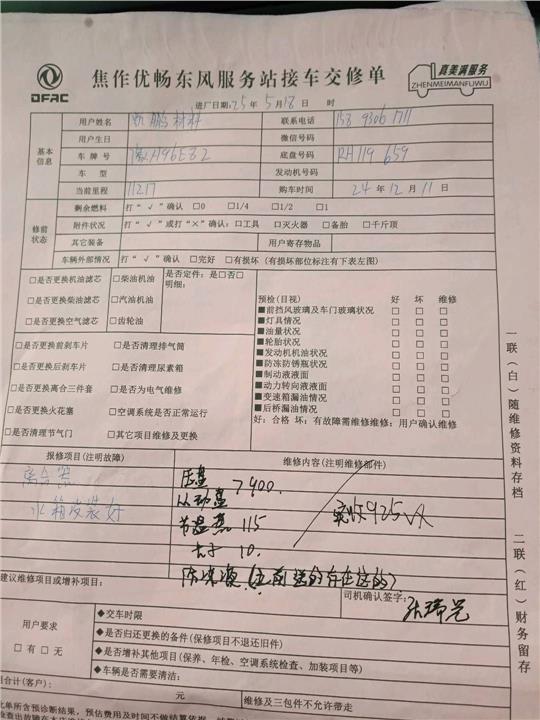 DFAC
焦作优畅东风服务站接车交修单
真美满服务
ZHENMEIMANFUWU
进厂日期:25年5月18日 时
基本信息
用户姓名
联系电话 158 9306 1711
用户生日
微信号码
车牌号
底盘号码 RH119659
车型
发动机号码
当前里程 11217
购车时间 24年12月11日
修前状态
剩余燃料 打“√”确认 □0 □1/4 □1/2 □1
附件状况 打“√”或打“×”确认:□工具 □灭火器 □备胎 □千斤顶
其它装备 用户寄存物品
车辆外部情况 打“√”确认 □完好 □有损坏 (有损坏部位标注有下表左图)
□是否更换机油滤芯 □柴油机油
□是否更换柴油滤芯 □汽油机油
□是否更换空气滤芯 □齿轮油
是否定件:是□否□
明细:
□是否更换前刹车片 □是否清理排气筒
□是否更换后刹车片 □是否清理尿素箱
□是否更换离合三件套 □是否为电气维修
□是否更换火花塞 □空调系统是否正常运行
□是否清理节气门 □其它项目维修及更换
预检(目视) 好 坏 维修
■前挡风玻璃及车门玻璃状况 □ □ □
■灯具情况 □ □ □
■油量状况 □ □ □
■轮胎状况 □ □ □
■发动机机油状况 □ □ □
■防冻防锈瓶状况 □ □ □
■制动液液面 □ □ □
■动力转向液液面 □ □ □
■变速箱漏油情况 □ □ □
■后桥漏油情况 □ □ □
好:合格 坏:有故障需维修维修:用户确认维修
报修项目(注明故障)
维修内容(注明维修部件)
离合器
水箱没装好
压盘
从动盘 7900.
节温器 115
卡子 10.
实收925
建议维修项目或增补项目:
司机确认签字:
用户要求
□有 □无
◆交车时限
◆是否归还更换的备件(保修项目不退还旧件)
◆是否增补其他项目(保养、年检、空调系统检查、加装项目等)
◆车辆是否需要清洁:
合计(客户): 元
维修及三包件不允许带走
此单所含预诊断结果,预估费用及时间不做结算依据
一联(白)随维修资料存档
二联(红)财务留存